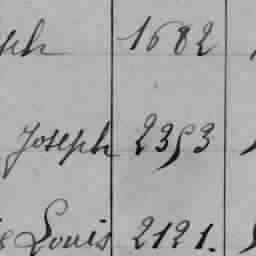 eph 1682
Joseph 2353
Louis 2121.